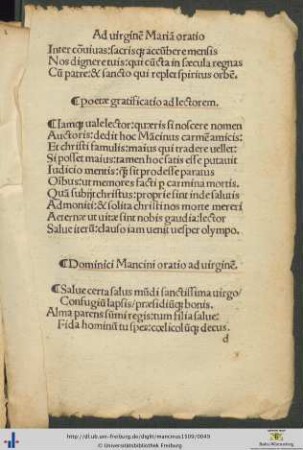 Ad virginē Mariā oratio
Inter cōuiuas: sacrisq; accūbere mensis
Nos dignere tuis: qui cūcta in sæcula regnas
Cū patre: & sancto qui replet spiritus orbē.
¶poetæ gratificatio ad lectorem.
¶Iamq; uale lector: quæris si noscere nomen
Auctoris: dedit hoc Mācinus carmē amicis:
Et christi famulis: maius qui tradere uellet:
Si posset maius: tamen hoc satis esse putauit
Iudicio mentis: q; sit prodesse paratus
Oībus: ut memores facti p carmina mortis.
Quā subijt christus: proprie sint inde salutis
Admoniti: & solita christi nos morte mereri
Aeternæ ut uitæ sint nobis gaudia: lector
Salue iterū: clauso iam uenit uesper olympo.
¶Dominici Mancini oratio ad uirginē.
¶Salue certa salus mūdi sanctissima uirgo/
Confugiū lapsis/ præsidiūq; bonis.
Alma parens sūmi regis: tum filia salue:
Fida hominū tu spes: cœlicolūq; decus.
d
http://dl.ub.uni-freiburg.de/diglit/mancinus1509/0049
© Universitätsbibliothek Freiburg
Baden-Württemberg